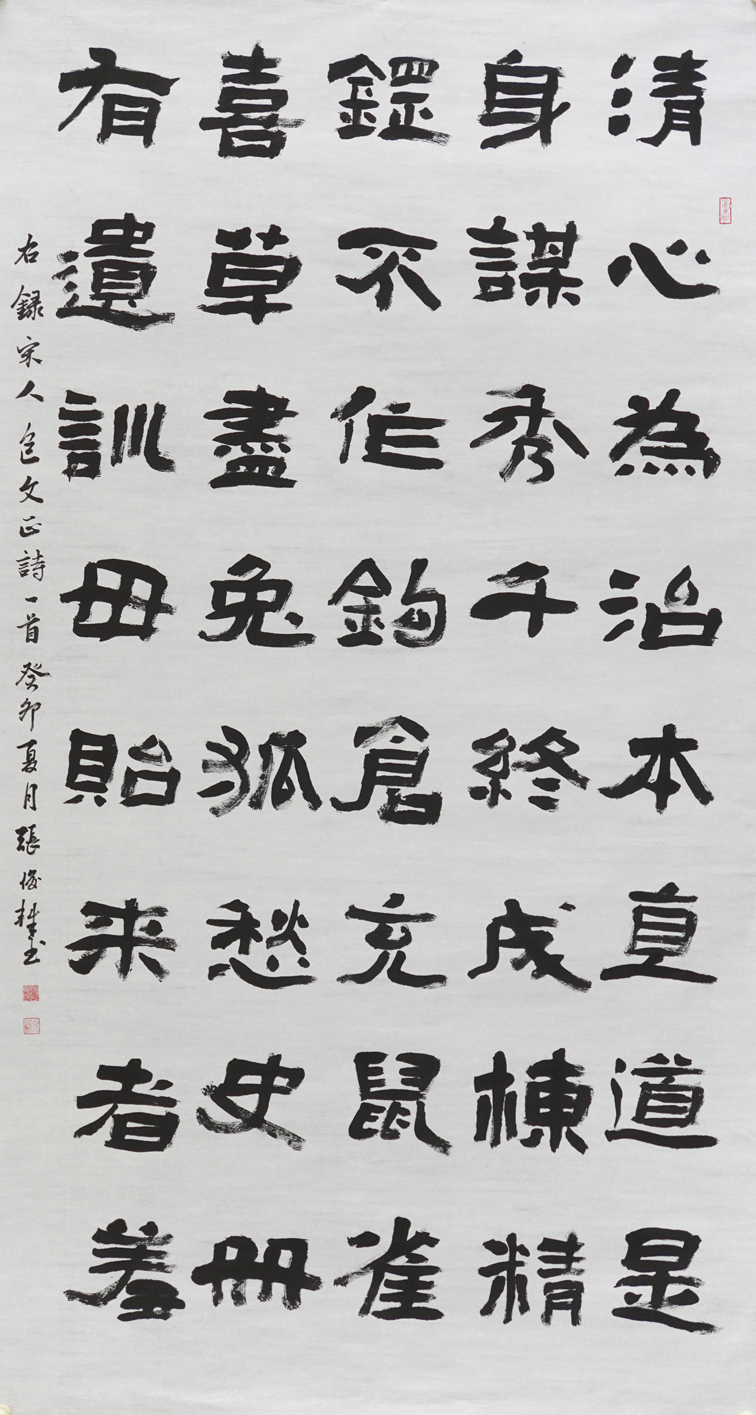 清心為治本直道是
身謀秀千終成棟精
鎠不作鉤倉充鼠雀
喜草盡兔狐愁史冊
有遺訓毋貽来者羞
右録宋人包文正詩一首癸卯夏月張俊桂书